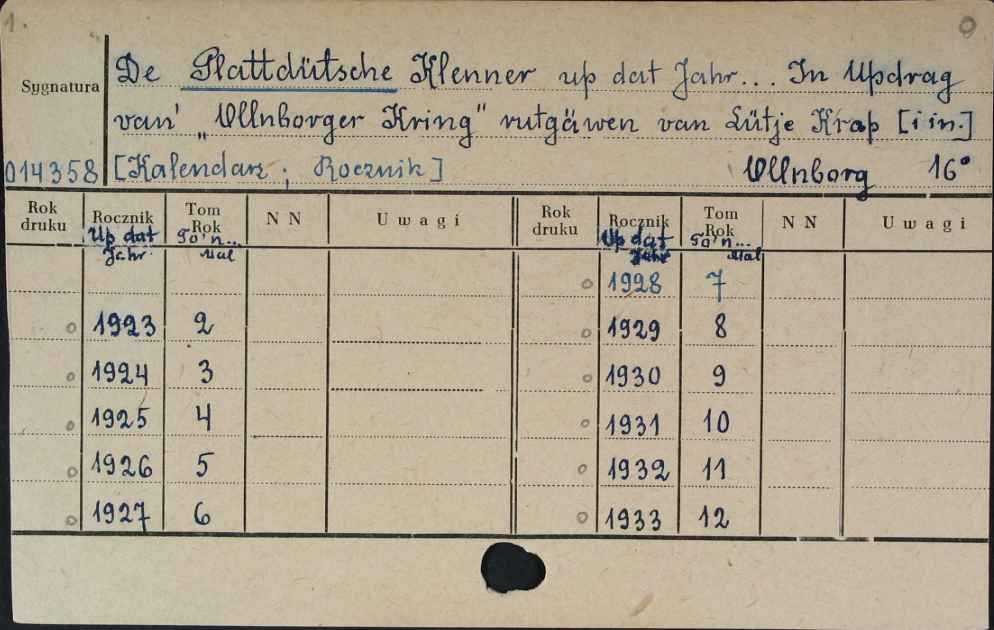 1.
De Plattdütsche Klenner up dat Jahr... In Updrag
Sygnatura
van' „Ollnborger Kring" rutgäwen van Lütje Krap [i in.]
014358 [Kalendarz; Rocznik] Ollnborg 16°
Rok druku Rocznik Tom Rok N N Uwagi Rok druku Rocznik Tom Rok N N Uwagi
Up dat Jahr To'n... Mal Up dat Jahr To'n... Mal
o 1928 7
o 1923 2 o 1929 8
o 1924 3 o 1930 9
o 1925 4 o 1931 10
o 1926 5 o 1932 11
o 1927 6 o 1933 12